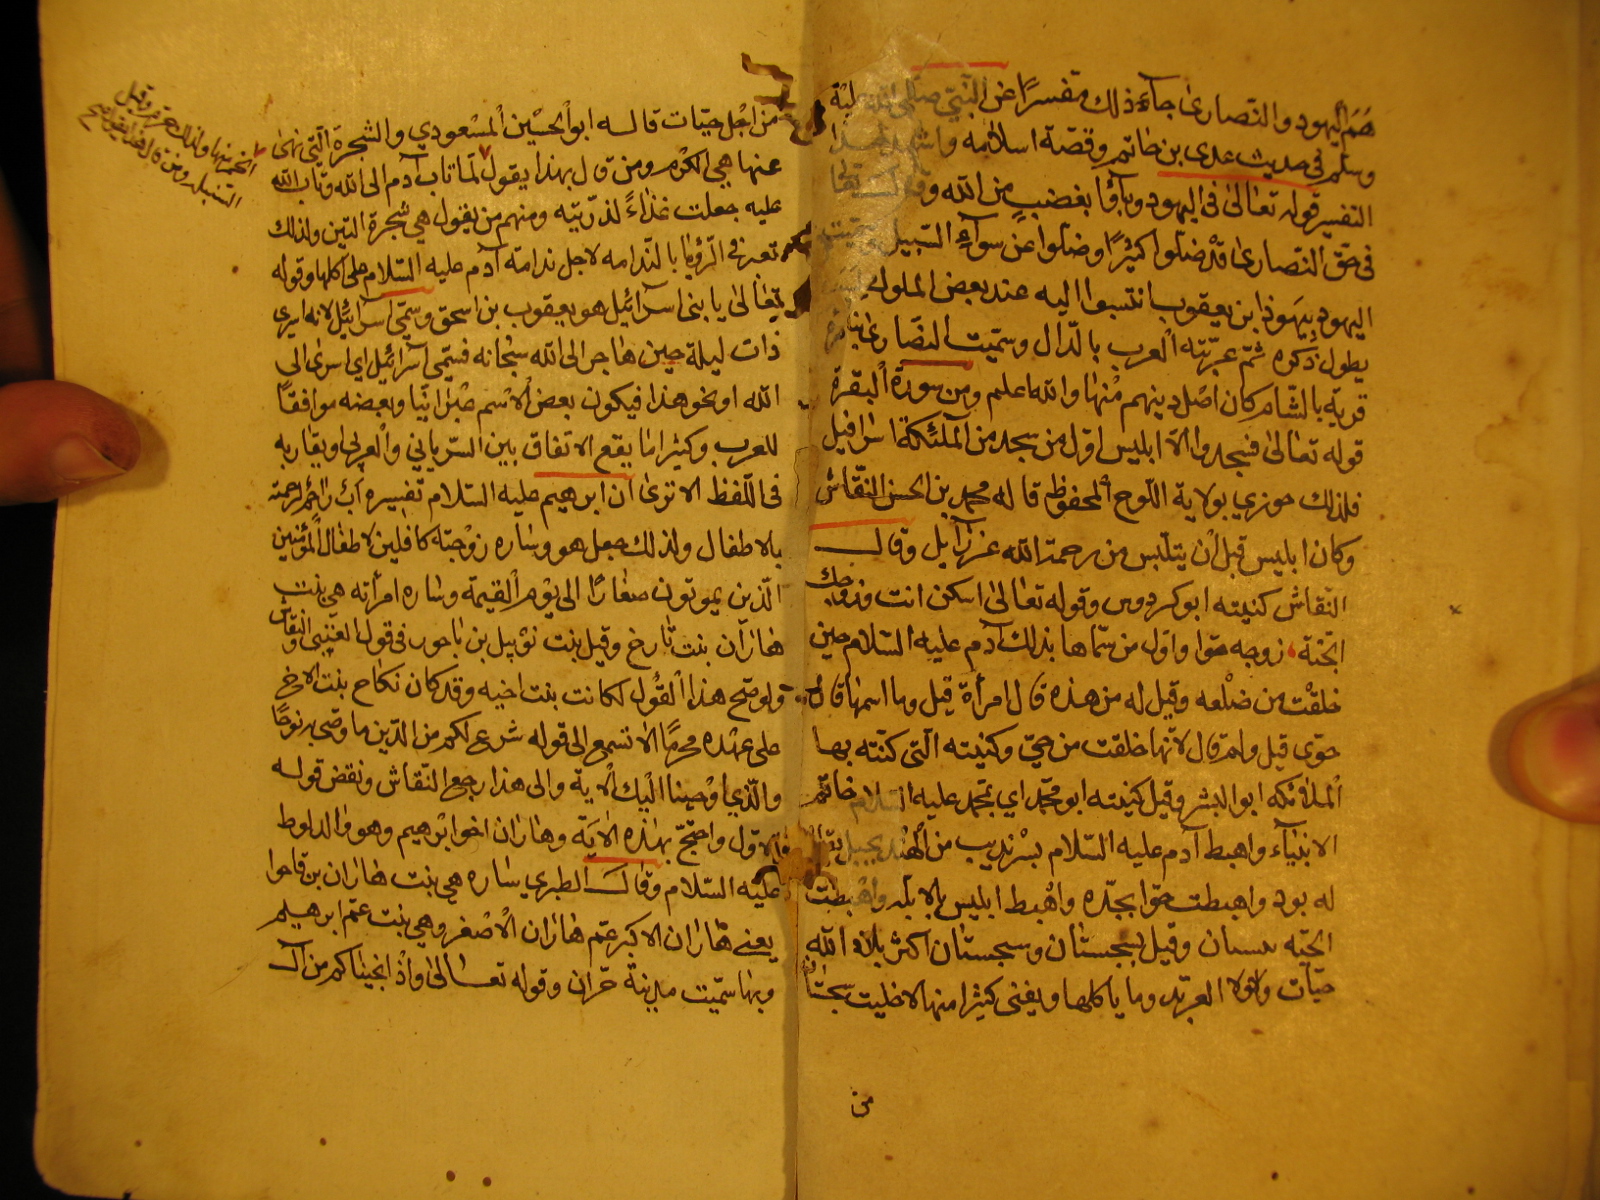 هم اليهود والنصارى جآء ذلك مفسرًا عن النبيّ صلى الله عليه
وسلم فى حديث عدى بن حاتم وقصّة اسلامه واشهد لهذا
التفسير قوله تعالى فى اليهود وبآؤا بغضبٍ من الله وقال تعالى
فى حق النصارى قد ضلّوا كثيرًا وضلّوا عن سوآء السبيل
اليهود بيهوذا ابن يعقوب انتسبوا اليه عند بعض الملوك
يطول ذكره ثمّ عرّبته العرب بالدّال وسمّيت النصارى
قرية بالشام كان اصل دينهم منها والله اعلم ومن سورة البقرة
قوله تعالى فسجدوا الّا ابليس اوّل من سجد من الملٓئكة اسرافيل
فلذلك جوزي بولاية اللّوح المحفوظ قاله محمد بن الحسن النقّاش
وكان ابليس قبل أن يبلس من رحمة الله عزازيل وقال
النقاش كنيته ابو كردوس وقوله تعالى اسكن انت وزوجك
الجنّة زوجه حوّا واوّل من سمّاها بذلك آدم عليه السلام حين
خلقت من ضلعه وقيل له من هذه قال امرأة قيل وما اسمها قال
حوّى قيل ولم قال لانّها خلقت من حيّ وكنيته الّتى كنته بها
الملائكه ابو البشر وقيل كنيته ابو محمّد اي بمحمد عليه السلام خاتم
الانبيآء واهبط آدم عليه السّلام بسرنديب من الهند بجبل يقال
له بود واهبطت حوّا بجدّه واهبط ابليس بالابلّه واهبطت
الحيّه ببيسان وقيل بسجستان وسجستان اكثر بلاد الله
حيّات ولولا العربد وما ياكلها ويفنى كثيرًا منها لاخليت سجستان
من
من اجل حيّات قاله ابو الحسين المسعودي والشجرة الّتى نهى
عنها هي الكرم ومن قال بهذا يقول لمّا تاب آدم الى الله وتاب الله
عليه جعلت غذآءً لذرّيته ومنهم من يقول هي شجرة التين ولذلك
تعبر فى الرّؤيا بالنّدامه لاجل ندامة آدم عليه السّلام على اكلها وقوله
تعالى يا بنى اسرآئيل هو يعقوب بن اسحق وسمّى اسرآئيل لانه اسرى
ذات ليلة حين هاجر الى الله سبحانه فسمّى اسرآئيل اي اسرى الى
الله او نحو هذا فيكون بعض الاسم عبرانيّا وبعضه موافقًا
للعرب وكثيرا ما يقع الاتفاق بين السّرياني والعربي او يقاربه
فى اللّفظ الا ترى ان ابرهيم عليه السلام تفسيره اب راحم لرحمته
بالاطفال ولذلك جعل هو وساره زوجته كافلين لاطفال المؤمنين
الّذين يموتون صغارًا الى يوم القيمة وساره امرأته هي بنت
هاران بنت تارخ وقيل بنت توبيل بن ناحور فى قول القتيبى والنقاش
ولو صحّ هذا القول لكانت بنت اخيه وقد كان نكاح بنت الاخ
على عهده محرمًا الا تسمع الى قوله شرع لكم من الدّين ما وصّى به نوحًا
والّذي اوحينا اليك الاية والى هذا رجع النّقاش ونقض قوله
الاوّل واحتجّ بهذه الايّة وهاران اخو ابرهيم وهو والد لوط
عليه السّلام وقال الطبري ساره هي بنت هاران بن ناحوا
يعنى هاران الاكبر عمّ هاران الاصغر وهي بنت عمّ ابرهيم
وبها سمّيت مدينة حرّان وقوله تعالى واذ انجيناكم من آل